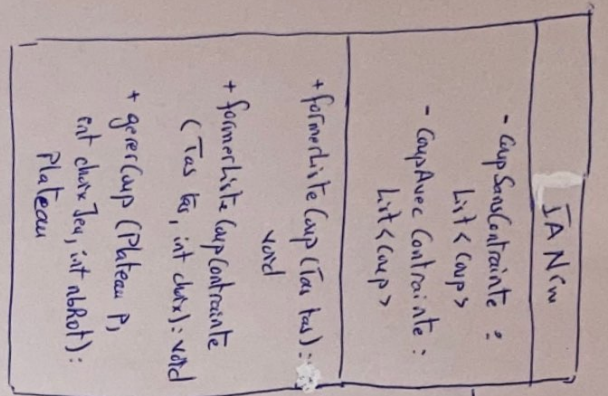 IA Nim
- CoupSansContrainte :
List<Coup>
- CoupAvecContrainte :
List<Coup>
+ formerListeCoup (Tas tas) :
void
+ formerListeCoupContrainte
(Tas tas, int choix) : void
+ gererCoup (Plateau p,
int choixJeu, int nbRot) :
Plateau